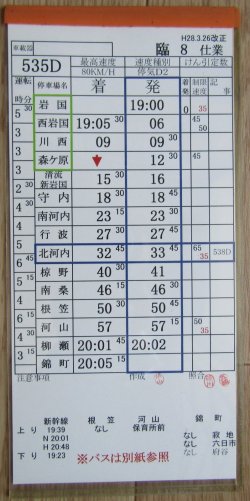 H28.3.26改正
乗務箇 臨 8 仕業
535D 最高速度 80KM/H 速度種別 停気D2 けん引定数
運転時分 停車場名 着 発 着発 制限速度 記事
岩国 19:00 0 35
5 30 西岩国 19:05 30 06 45 50
3 川西 09 09 30
3 森ケ原 12 30 45
3 清流新岩国 15 30 16
2 守内 18 30 18 45
南河内 23 15 23 30
行波 27 27 30
北河内 32 45 33 45 65 35 538D
6 45 椋野 40 41
南桑 46 46 30
根笠 50 50 30
6 河山 57 57 15 50
柳瀬 20:01 45 20:02
3 15 錦町 20:05 15 35
注意事項 作成 照合
新幹線 根笠 河山 錦町
上り 19:39 なし 保育所前
N 20:01 なし 寂地
H 20:48 なし 六日市
下り 19:23 なし 府谷
※バスは別紙参照